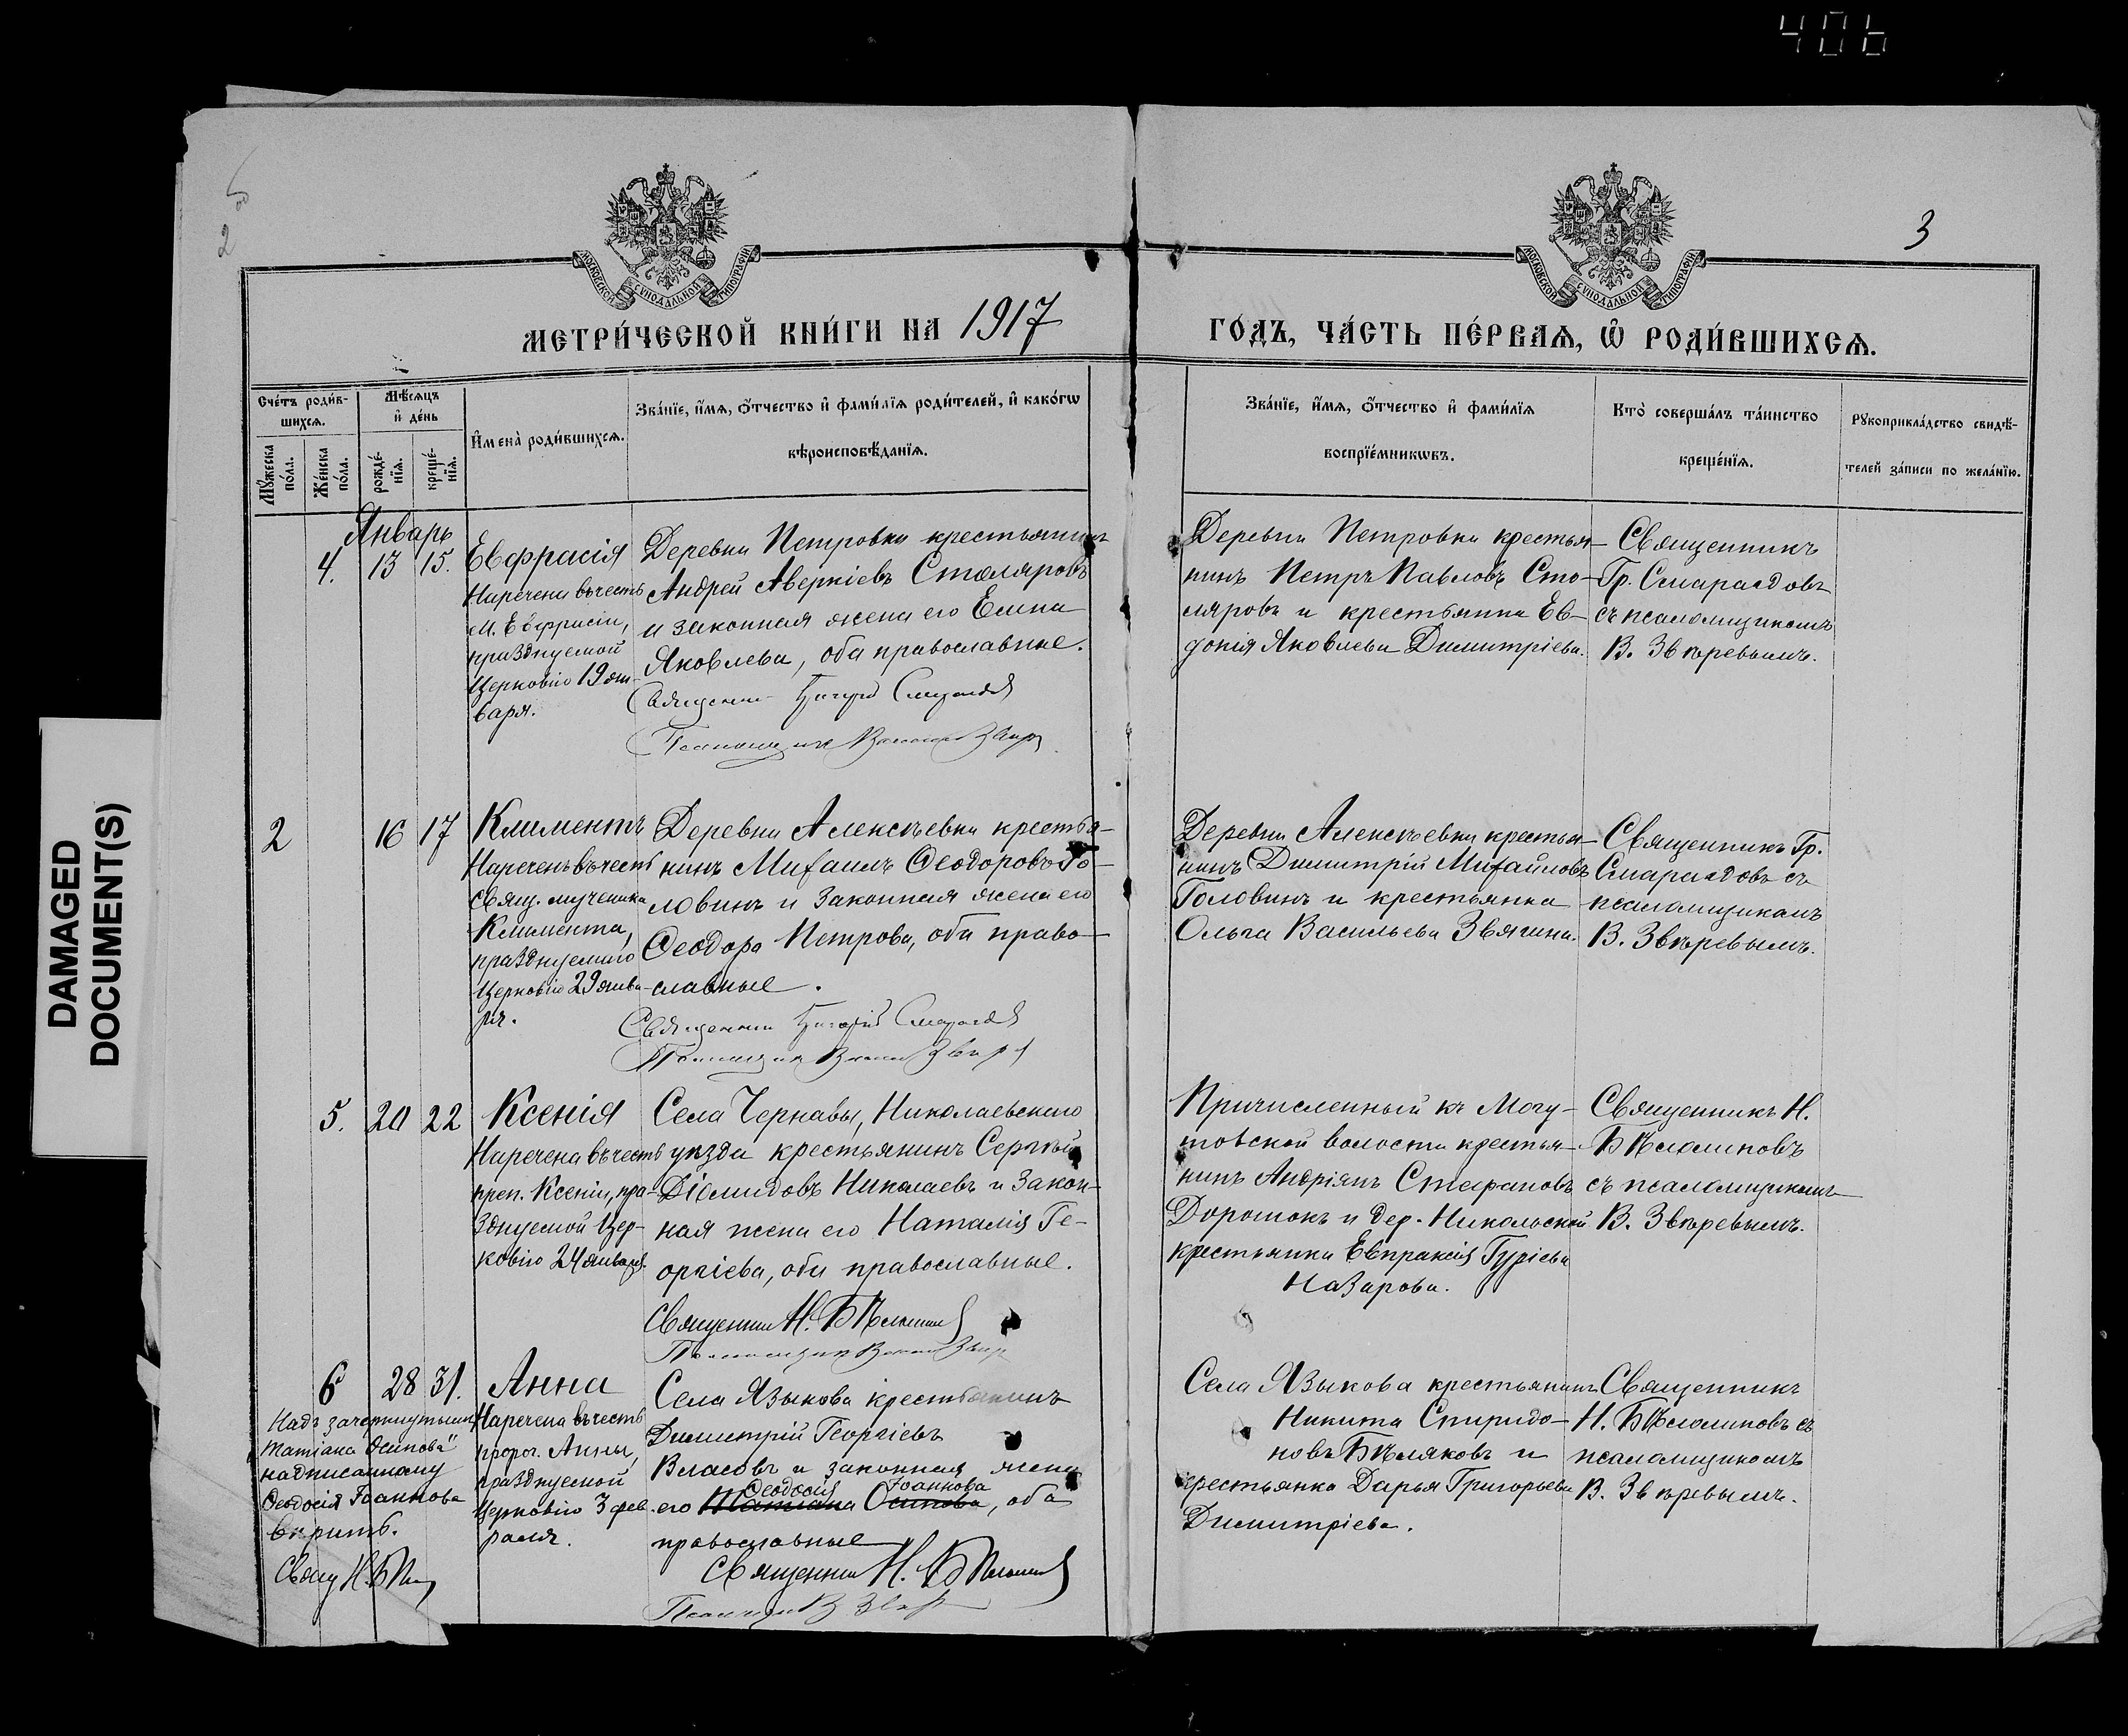 406
5
2
3
МОСКОВСКОЙ СѴНОДАЛЬНОЙ ТИПОГРАФІИ
МОСКОВСКОЙ СѴНОДАЛЬНОЙ ТИПОГРАФІИ
МЕТРИ́ЧЕСКОЙ КНИ́ГИ НА 1917
ГО́ДЪ, ЧА́СТЬ ПЕ́РВАѦ, Ѡ҆ РОДИ́ВШИХСѦ.
Сче́тъ роди́в-
шихсѧ.
Мꙋ́жеска по́ла.
Же́нска по́ла.
Мѣ́сѧцъ
и҆ де́нь
рожде́-
нїѧ.
креще́-
нїѧ.
И҆мена̀ роди́вшихсѧ.
Зва́нїе, и҆́мѧ, ѻ҆́тчество и҆ фами́лїѧ роди́телей, и҆ како́гѡ
вѣроисповѣ́данїѧ.
Зва́нїе, и҆́мѧ, ѻ҆́тчество и҆ фами́лїѧ
воспрїе́мникѡвъ.
Кто̀ соверша́лъ та́инство
креще́нїѧ.
Рꙋкоприкла́дство свидѣ́-
телей за́писи по жела́нїю.
DAMAGED
DOCUMENT(S)
Январь
4. 13 15.
Евфрасія
Наречена въ честь
м. Евфрасіи,
празднуемой
Церковію 19 ян-
варя.
Деревни Петровки крестьянинъ
Андрей Аверкіевъ Столяровъ
и законная жена его Елена
Яковлева, оба православные.
Священникъ Григорій Смарагдовъ
Псаломщикъ В. Звѣревъ
Деревни Петровки крестья-
нинъ Петръ Павловъ Сто-
ляровъ и крестьянка Ев-
докія Яковлева Димитріева.
Священникъ
Гр. Смарагдовъ
съ псаломщикомъ
В. Звѣревымъ.
2 16 17
Климентъ
Нареченъ въ честь
свящ. мученика
Климента,
празднуемаго
Церковію 23 янва-
ря.
Деревни Алексѣевки крестья-
нинъ Михаилъ Ѳеодоровъ Го-
ловинъ и законная жена его
Ѳеодора Петрова, оба право-
славные.
Священникъ Григорій Смарагдовъ
Псаломщикъ В. Звѣревъ
Деревни Алексѣевки крестья-
нинъ Димитрій Михайловъ
Головинъ и крестьянка
Ольга Васильева Звягина.
Священникъ Гр.
Смарагдовъ съ
псаломщикомъ
В. Звѣревымъ.
5. 20 22
Ксенія
Наречена въ честь
преп. Ксеніи, пра-
зднуемой Цер-
ковію 24 января.
Села Чернавы, Николаевскаго
уѣзда крестьянинъ Сергѣй
Діомидовъ Николаевъ и закон-
ная жена его Наталія Ге-
оргіева, оба православные.
Священникъ Н. Бѣломиновъ
Псаломщикъ В. Звѣревъ
Причисленный къ Могу-
товской волости крестья-
нинъ Андріянъ Стефановъ
Дорошокъ и дер. Никольской
крестьянка Евпраксія Гуріева
Назарова.
Священникъ Н.
Бѣломиновъ
съ псаломщикомъ
В. Звѣревымъ.
6 28 31.
Анна
Наречена въ честь
прор. Анны,
празднуемой
Церковію 3 фев
раля.
Надъ зачеркнутымъ
"Татіана Осипова"
надписанному
Ѳеодосія Іоаннова
вѣрить.
Свящ Н. Бѣл
Села Языкова крестьянинъ
Димитрій Георгіевъ
Власовъ и законная жена
Ѳеодосія Іоаннова
его Татіана Осипова, оба
православные
Священникъ Н. Бѣломиновъ
Псаломщ В Звѣр
Села Языкова крестьянинъ
Никита Спиридо-
новъ Бѣляковъ и
крестьянка Дарья Григорьева
Димитріева.
Священникъ
Н. Бѣломиновъ съ
псаломщикомъ
В. Звѣревымъ.